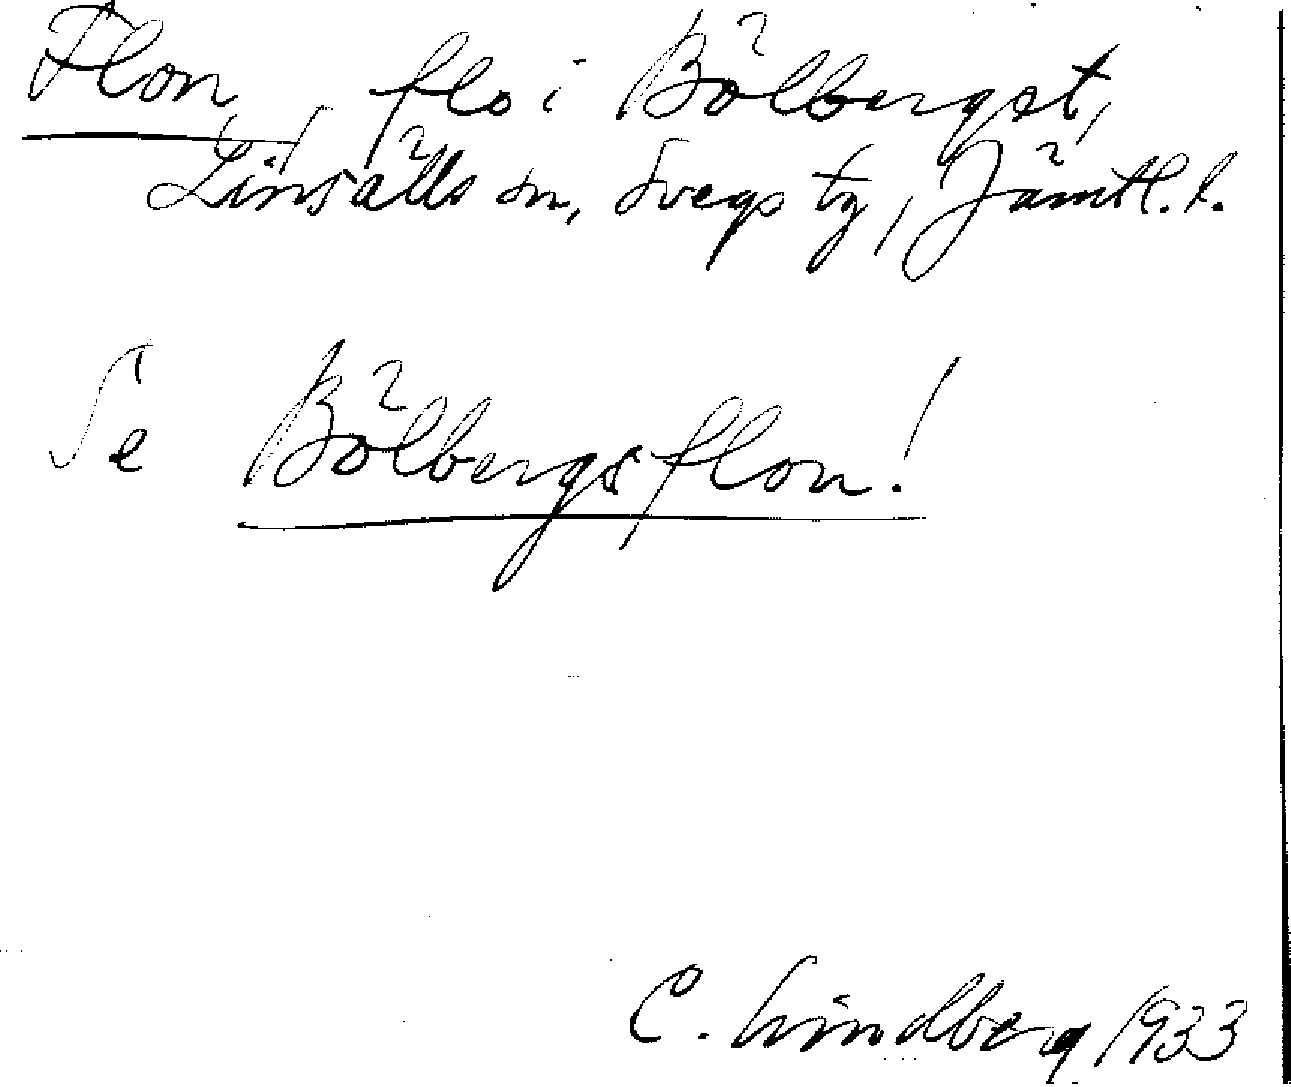 Flon, flo i Bölbergst,
Linsälls sn, Svegs tg, Jämtl. l.
Se Bölbergsflon!
C. Lindberg 1933